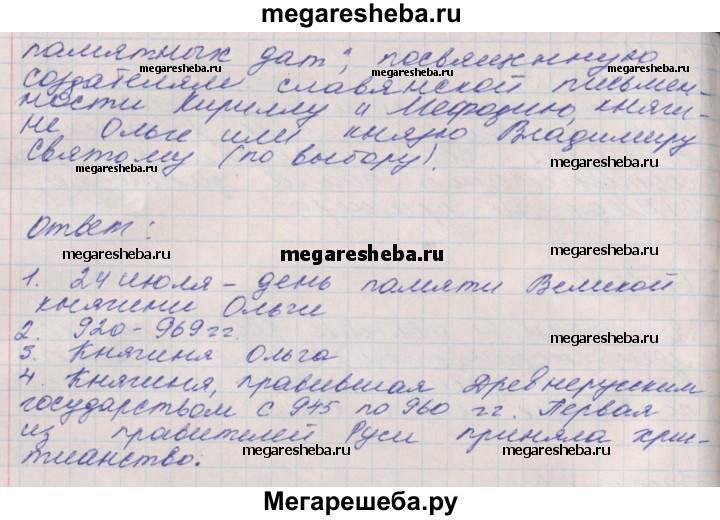 megaresheba.ru
памятных дат", посвященную
создателям славянской письмен-
megaresheba.ru megaresheba.ru
ности Кириллу и Мефодию, княги-
не Ольге или князю Владимиру
Святому (по выбору).
megaresheba.ru megaresheba.ru
Ответ:
megaresheba.ru megaresheba.ru megaresheba.ru
1. 24 июля - день памяти Великой
княгини Ольги
2. 920-969 гг.
megaresheba.ru
3. Княгиня Ольга
4. Княгиня, правившая Древнерусским
государством с 945 по 960 гг. Первая
megaresheba.ru megaresheba.ru
из правителей Руси приняла хри-
тианство.
megaresheba.ru megaresheba.ru
Мегарешеба.ру